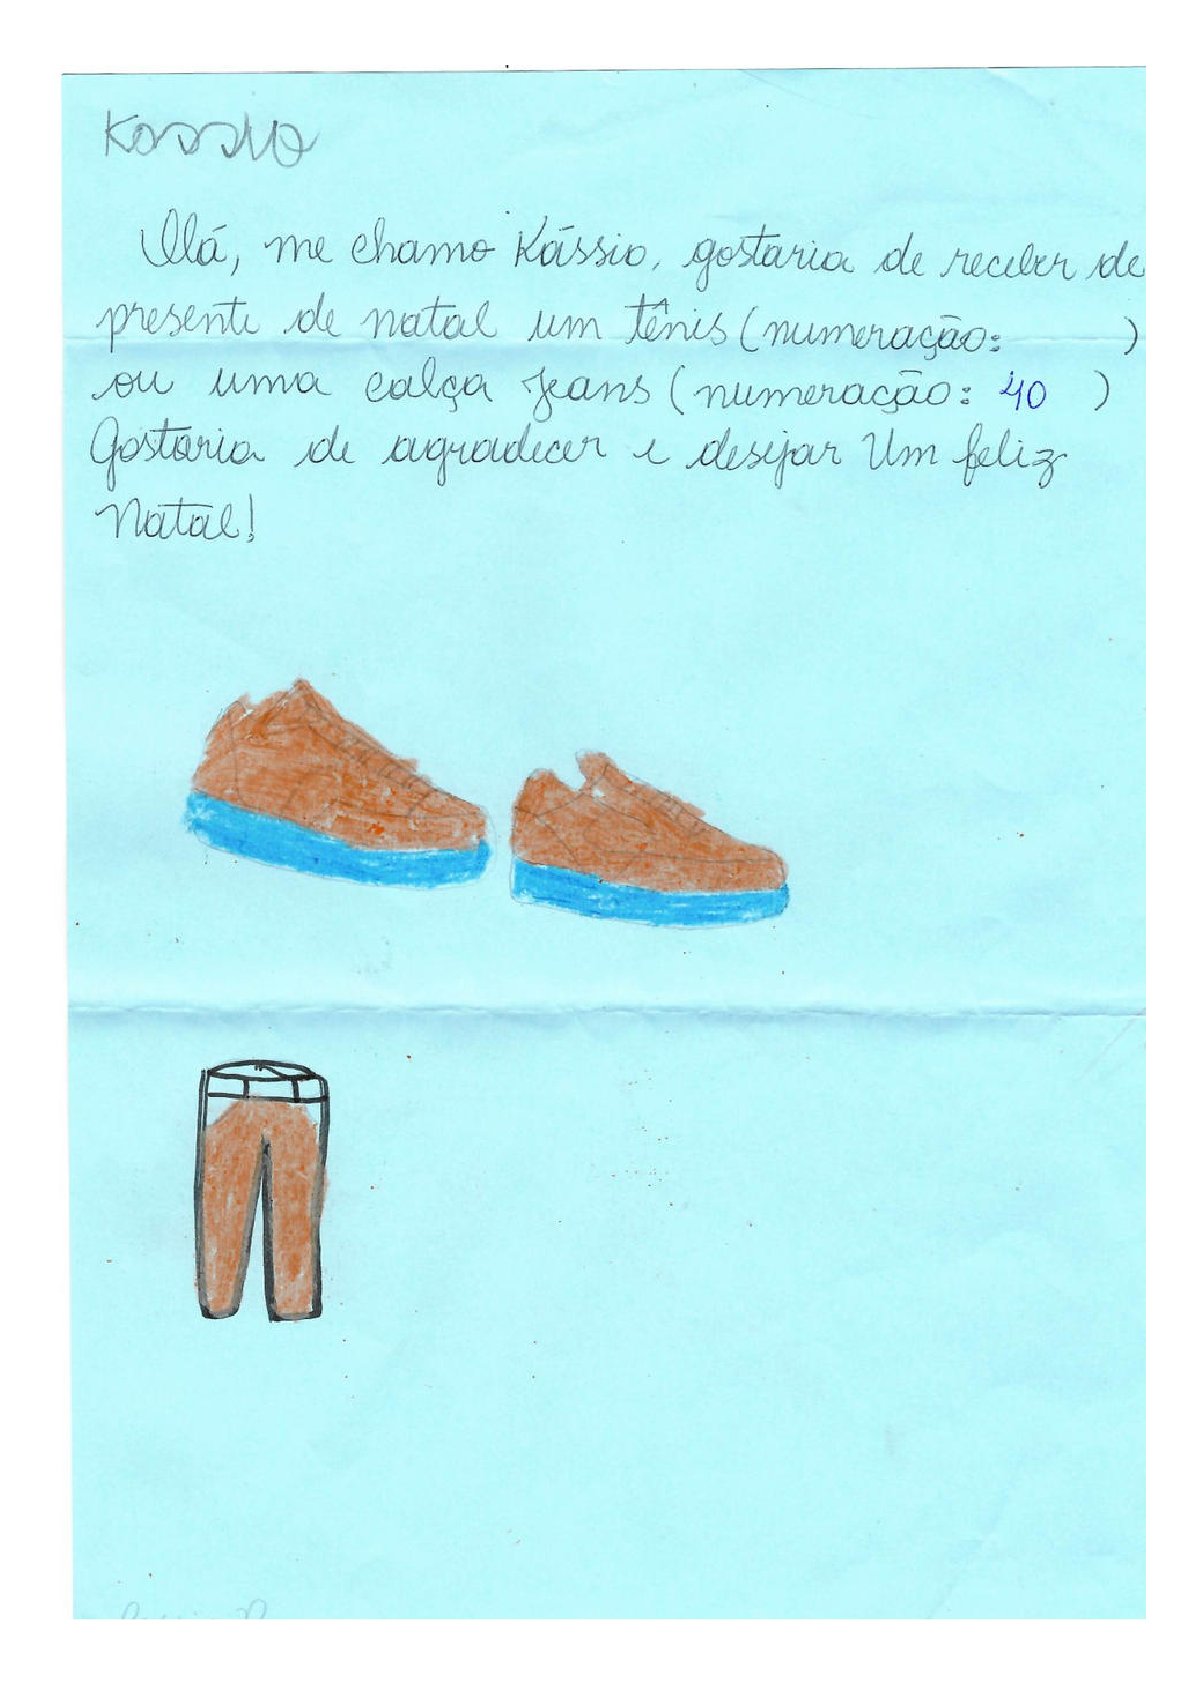 Kassio
Olá, me chamo Kássio, gostaria de receber de
presente de natal um tênis (numeração: )
ou uma calça jeans (numeração: 40 )
Gostaria de agradecer e desejar Um feliz
Natal!